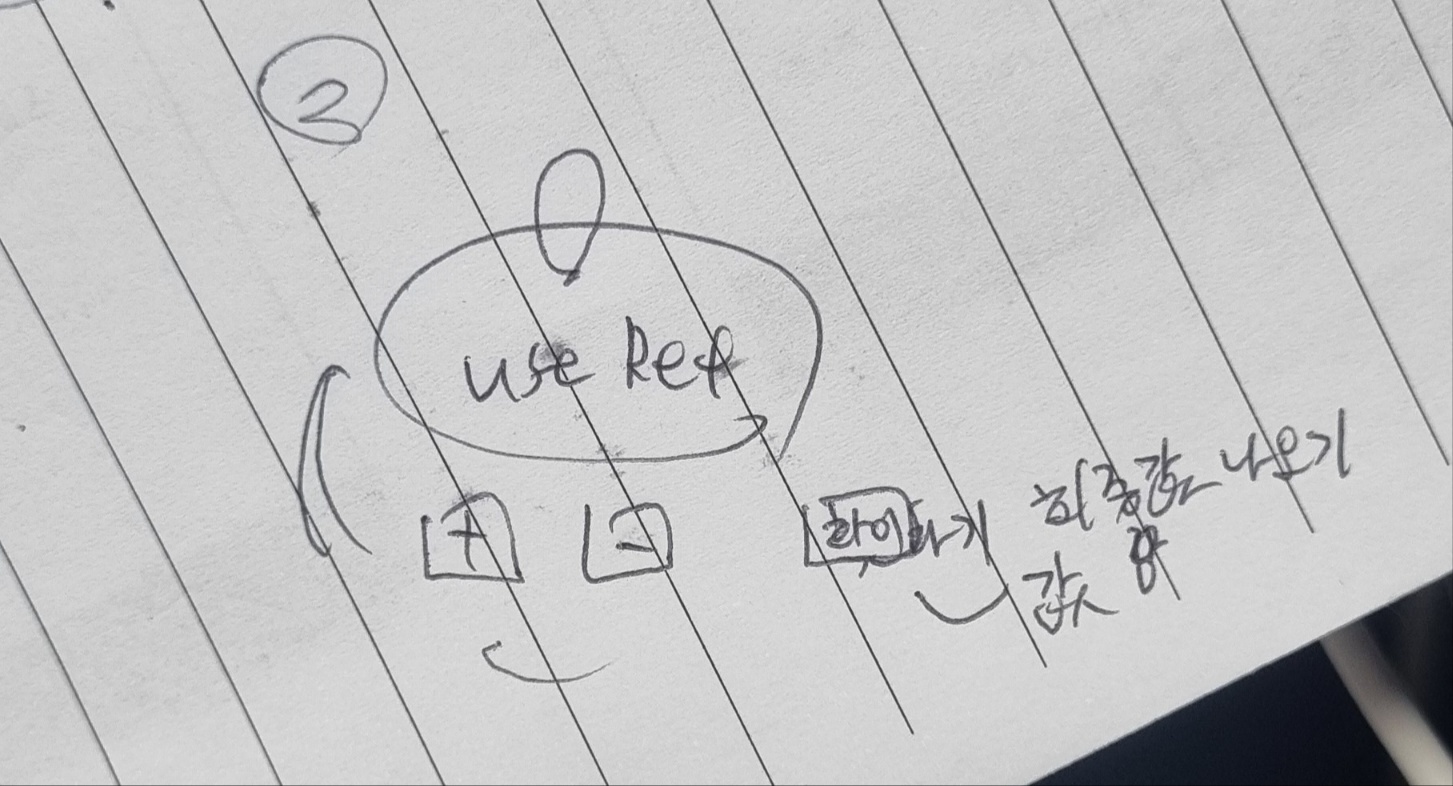 ②
0
use Ref
+ -
확인하기
최종값 나오기
값